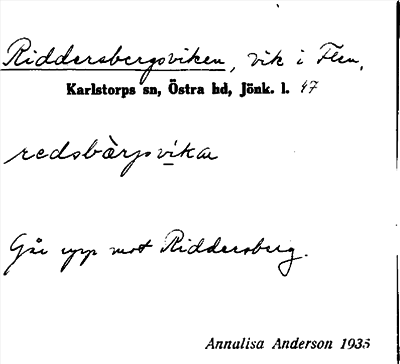 Riddersbergsviken, vik i Flen,
Karlstorps sn, Östra hd, Jönk. l. 47
redsbàrjsvikan
Går upp mot Riddersberg.
Annalisa Anderson 1935